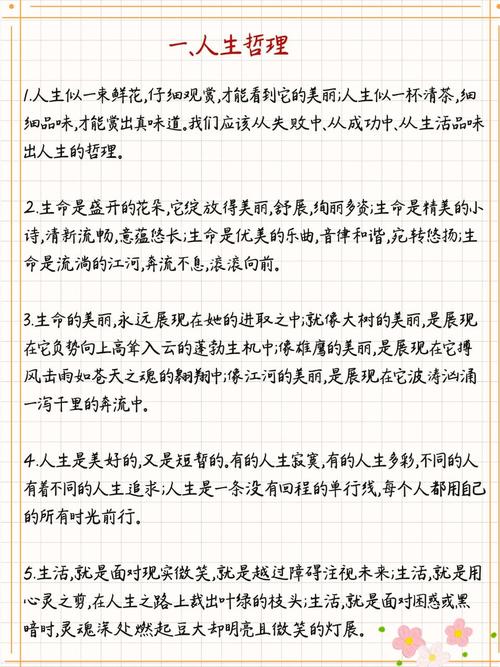 一、人生哲理
1.人生似一束鲜花,仔细观赏,才能看到它的美丽;人生似一杯清茶,细
细品味,才能赏出真味道。我们应该从失败中、从成功中、从生活品味
出人生的哲理。
2.生命是盛开的花朵,它绽放得美丽,舒展,绚丽多资;生命是精美的小
诗,清新流畅,意蕴悠长;生命是优美的乐曲,音律和谐,宛转悠扬;生
命是流淌的江河,奔流不息,滚滚向前。
3.生命的美丽,永远展现在她的进取之中;就像大树的美丽,是展现
在它负势向上高耸入云的蓬勃生机中;像雄鹰的美丽,是展现在它搏
风击雨如苍天之魂的翱翔中;像江河的美丽,是展现在它波涛汹涌
一泻千里的奔流中。
4.人生是美好的,又是短暂的。有的人生寂寞,有的人生多彩,不同的人
有着不同的人生追求;人生是一条没有回程的单行线,每个人都用自己
的所有时光前行。
5.生活,就是面对现实微笑,就是越过障碍注视未来;生活,就是用
心灵之剪,在人生之路上裁出叶绿的枝头;生活,就是面对困惑或黑
暗时,灵魂深处燃起豆大却明亮且微笑的灯展。